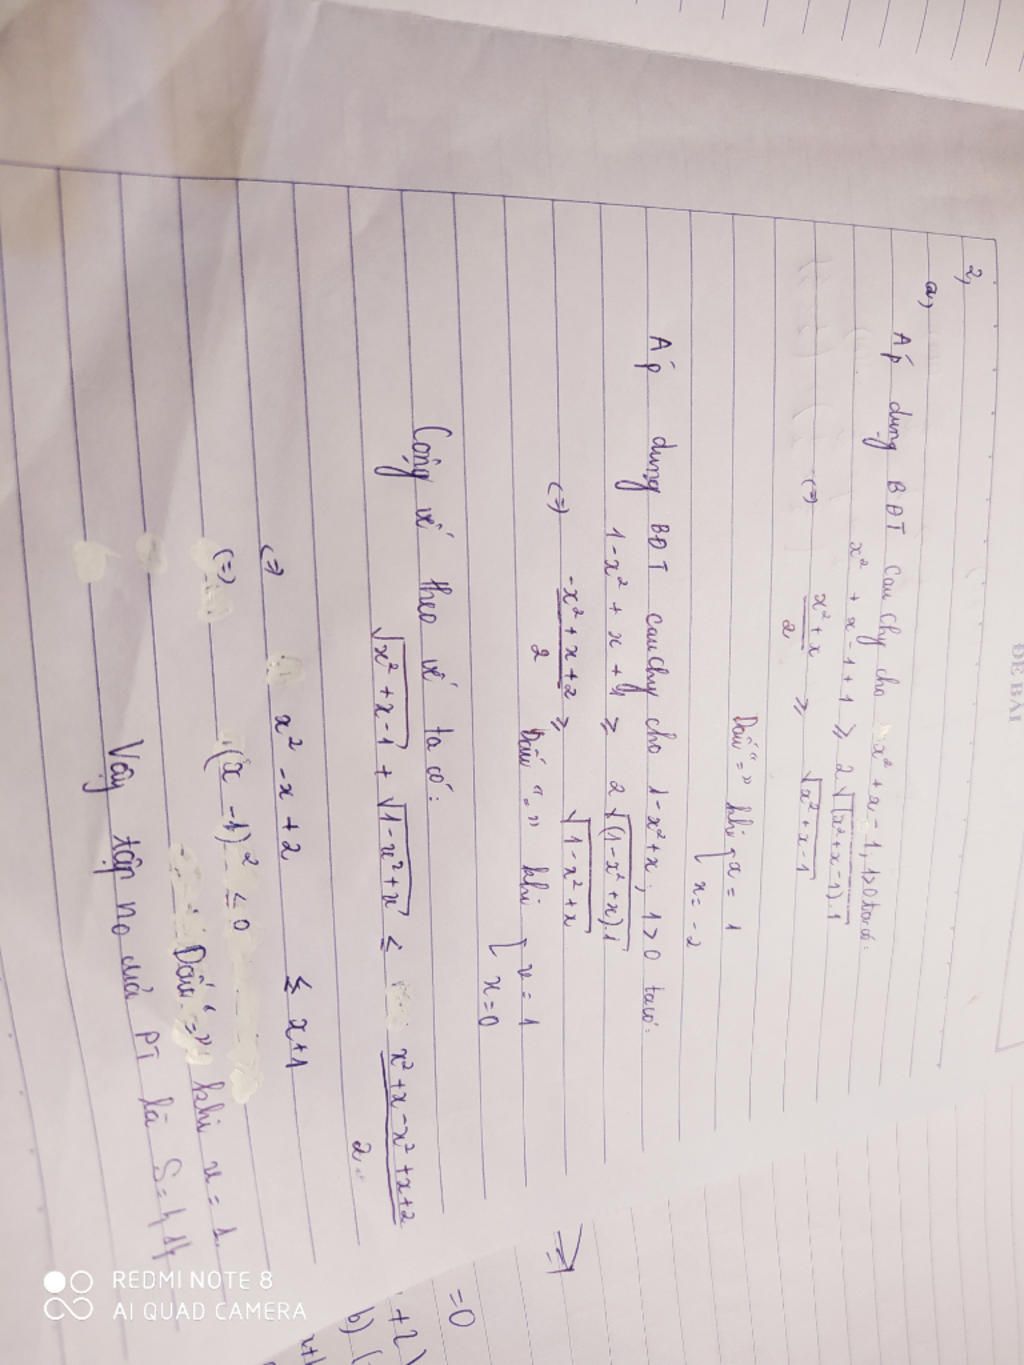 ĐỀ BÀI
2,
a,
Áp dụng BĐT Cauchy cho x² + x - 1, 1>0 ta có:
x² + x - 1 + 1 ≥ 2√(x²+x-1).1
(=) x² + x / 2 ≥ √x²+x-1
Dấu "=" khi [ x = 1
x = -2
Áp dụng BĐT Cauchy cho 1-x²+x, 1>0 ta có:
1-x² + x + 1 ≥ 2√(1-x²+x).1
(=) -x² + x + 2 / 2 ≥ √1-x²+x
Dấu "=" khi [ x = 1
x = 0
Cộng vế theo vế ta có:
√x²+x-1 + √1-x²+x ≤ x²+x-x²+x+2 / 2
(=) x² - x + 2 ≤ x+1
(=) (x-1)² ≤ 0
Dấu "=" khi x = 1.
Vậy tập no của PT là S={1}
=0
+2)
b) (
x+1
REDMI NOTE 8
AI QUAD CAMERA